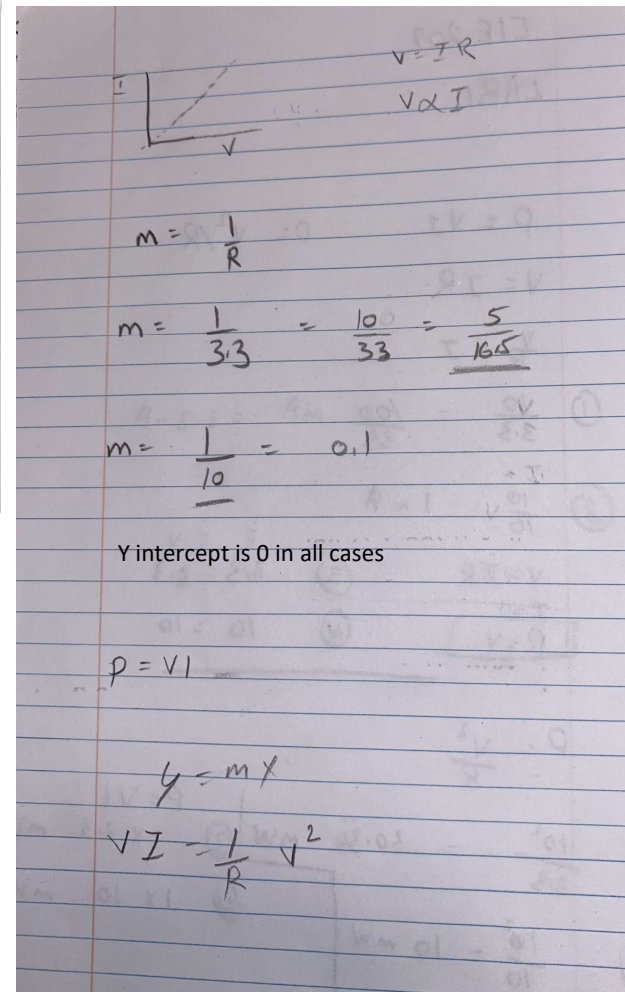 V = IR
I
V ∝ I
V
m = 1/R
m = 1/3.3 = 10/33 = 5/16.5
m = 1/10 = 0.1
Y intercept is 0 in all cases
P = VI
y = mx
VI = 1/R V²